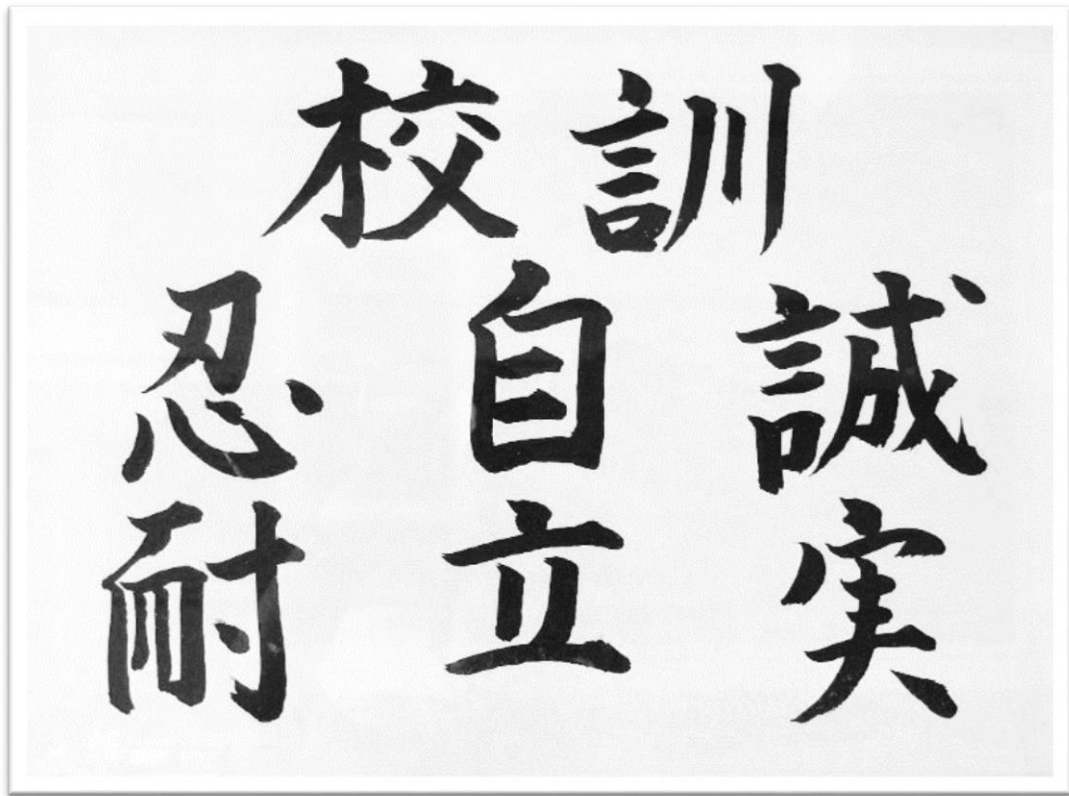 校訓
誠実
自立
忍耐